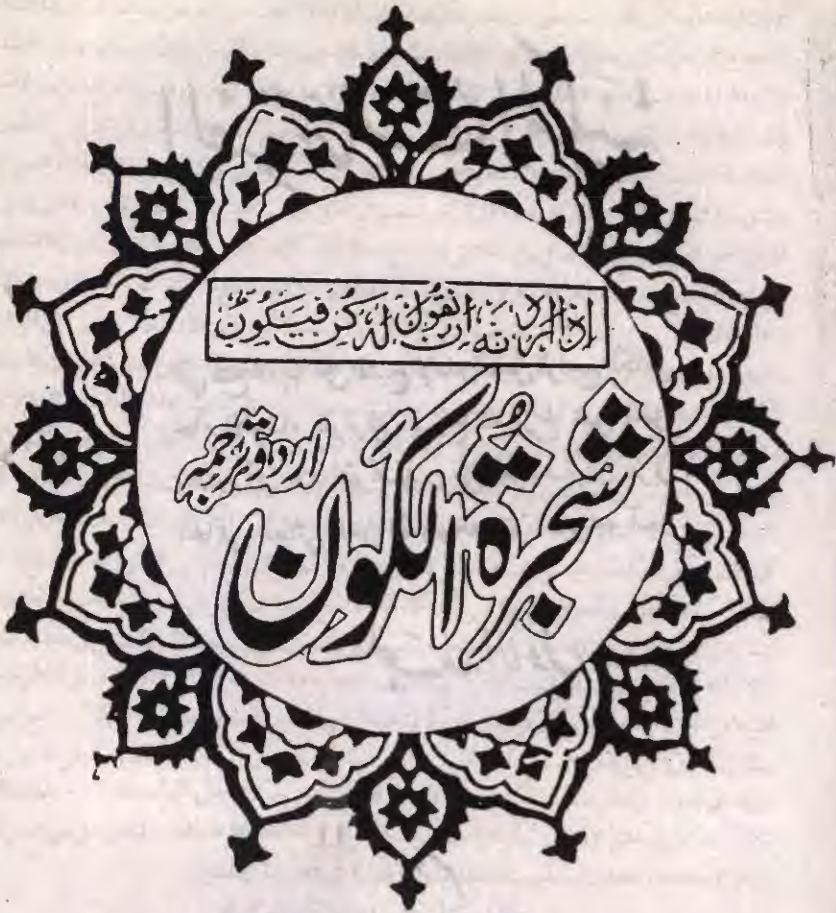 اذا اردنه ان نقول له كن فيكون
شجرة الكون
اردو ترجمہ